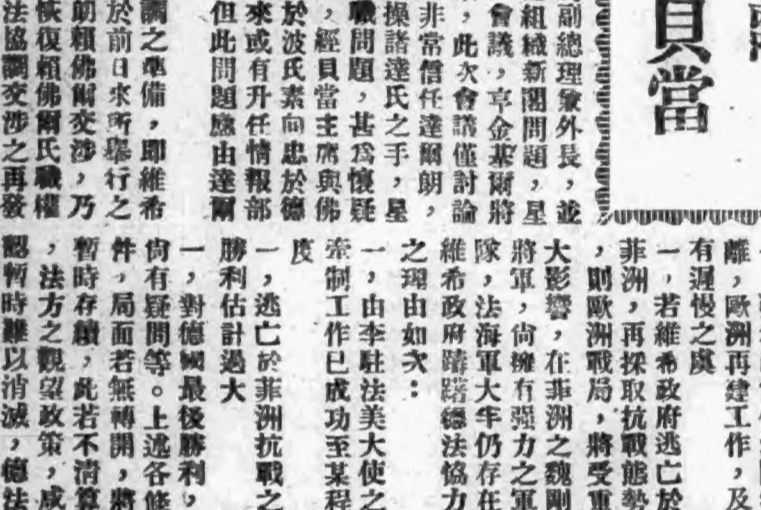 貝當
副總理兼外長，並
組織新閣問題，星
會議，亨金基爾將
，此次會議僅討論
非常信任達爾朗，
操諸達氏之手，星
職問題，甚爲懷疑
，經貝當主席與佛
於波氏素向忠於德
來或有升任情報部
但此問題應由達爾
調之準備，即維希
於前日來所舉行之
朗賴佛爾交涉，乃
恢復賴佛爾氏職權
法協調交涉之再發
離，歐洲再建工作，及
有遲慢之虞
一，若維希政府逃亡於
菲洲，再採取抗戰態勢
，則歐洲戰局，將受重
大影響，在菲洲之魏剛
將軍，尙擁有强力之軍
隊，法海軍大半仍存在
維希政府躊躇德法協力
之理由如次：
一，由李駐法美大使之
牽制工作已成功至某程
度
一，逃亡於菲洲抗戰之
勝利估計過大
一，對德國最後勝利，
尙有疑問等。上述各條
件，局面若無轉開，將
暫時存續，此若不清算
，法方之觀望政策，成
認暫時難以消滅，德法